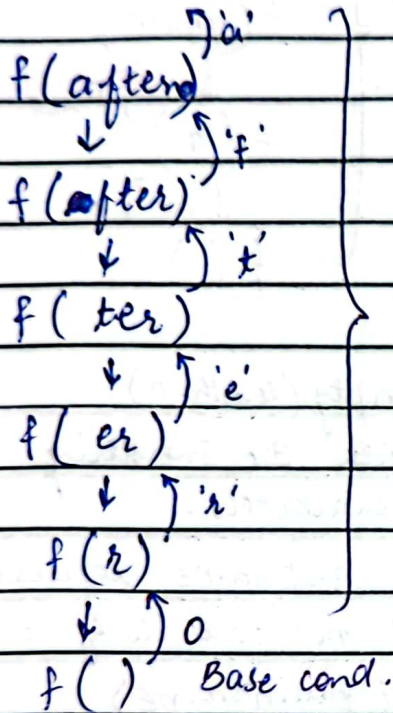 'a'
f(after)
↓ 'f'
f(fter)
↓ 't'
f( ter)
↓ 'e'
f( er)
↓ 'r'
f(r)
↓ 0
f( ) Base cond.